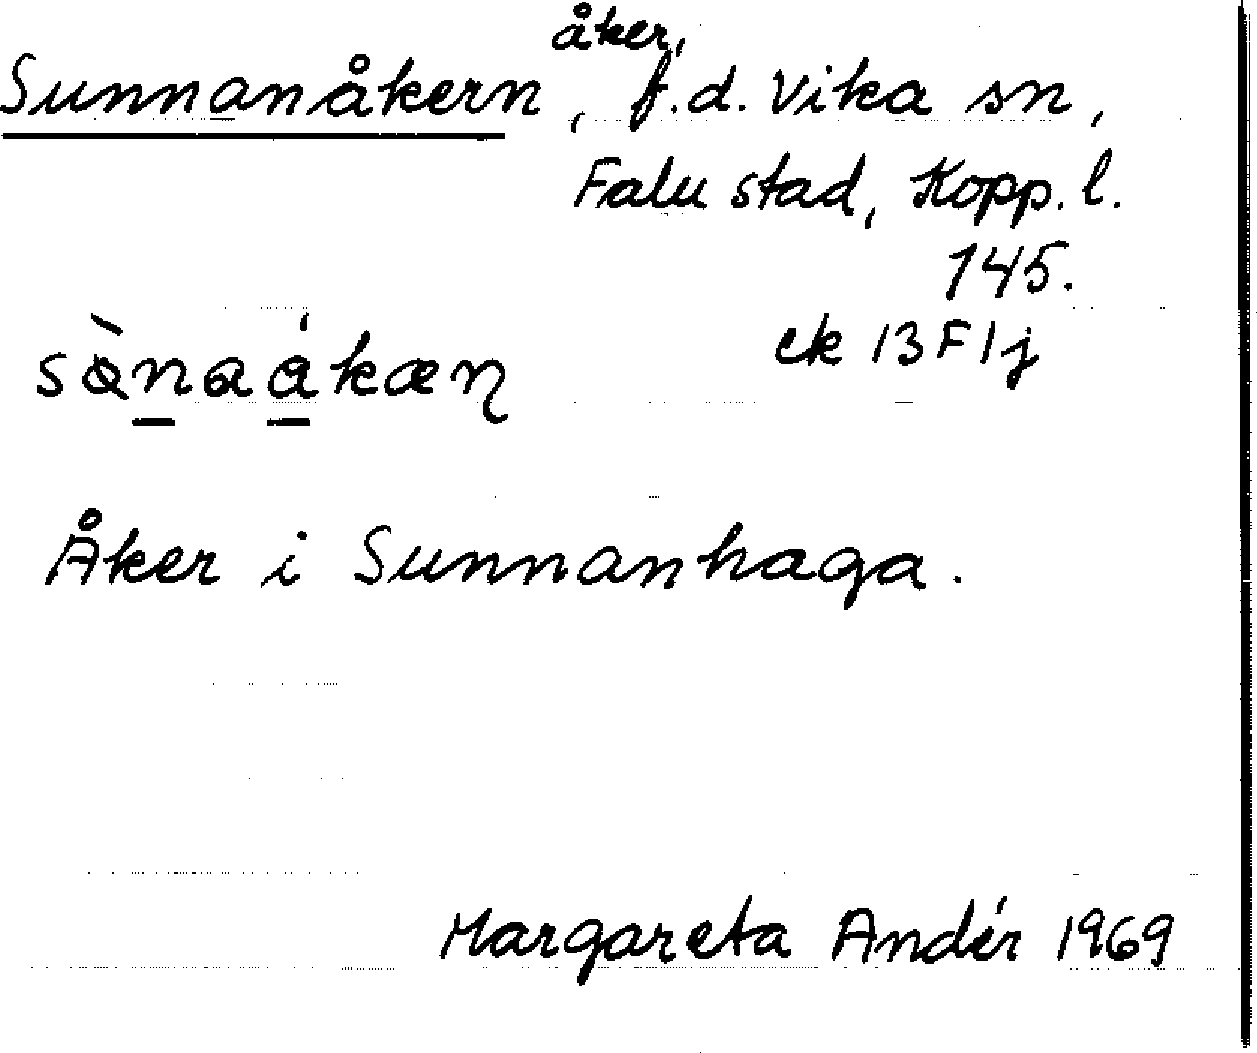 åker,
Sunnanåkern, f.d. Vika sn,
Falu stad, Kopp. l.
145.
ek 13 F 1 j
Åker i Sunnanhaga.
Margareta Andér 1969